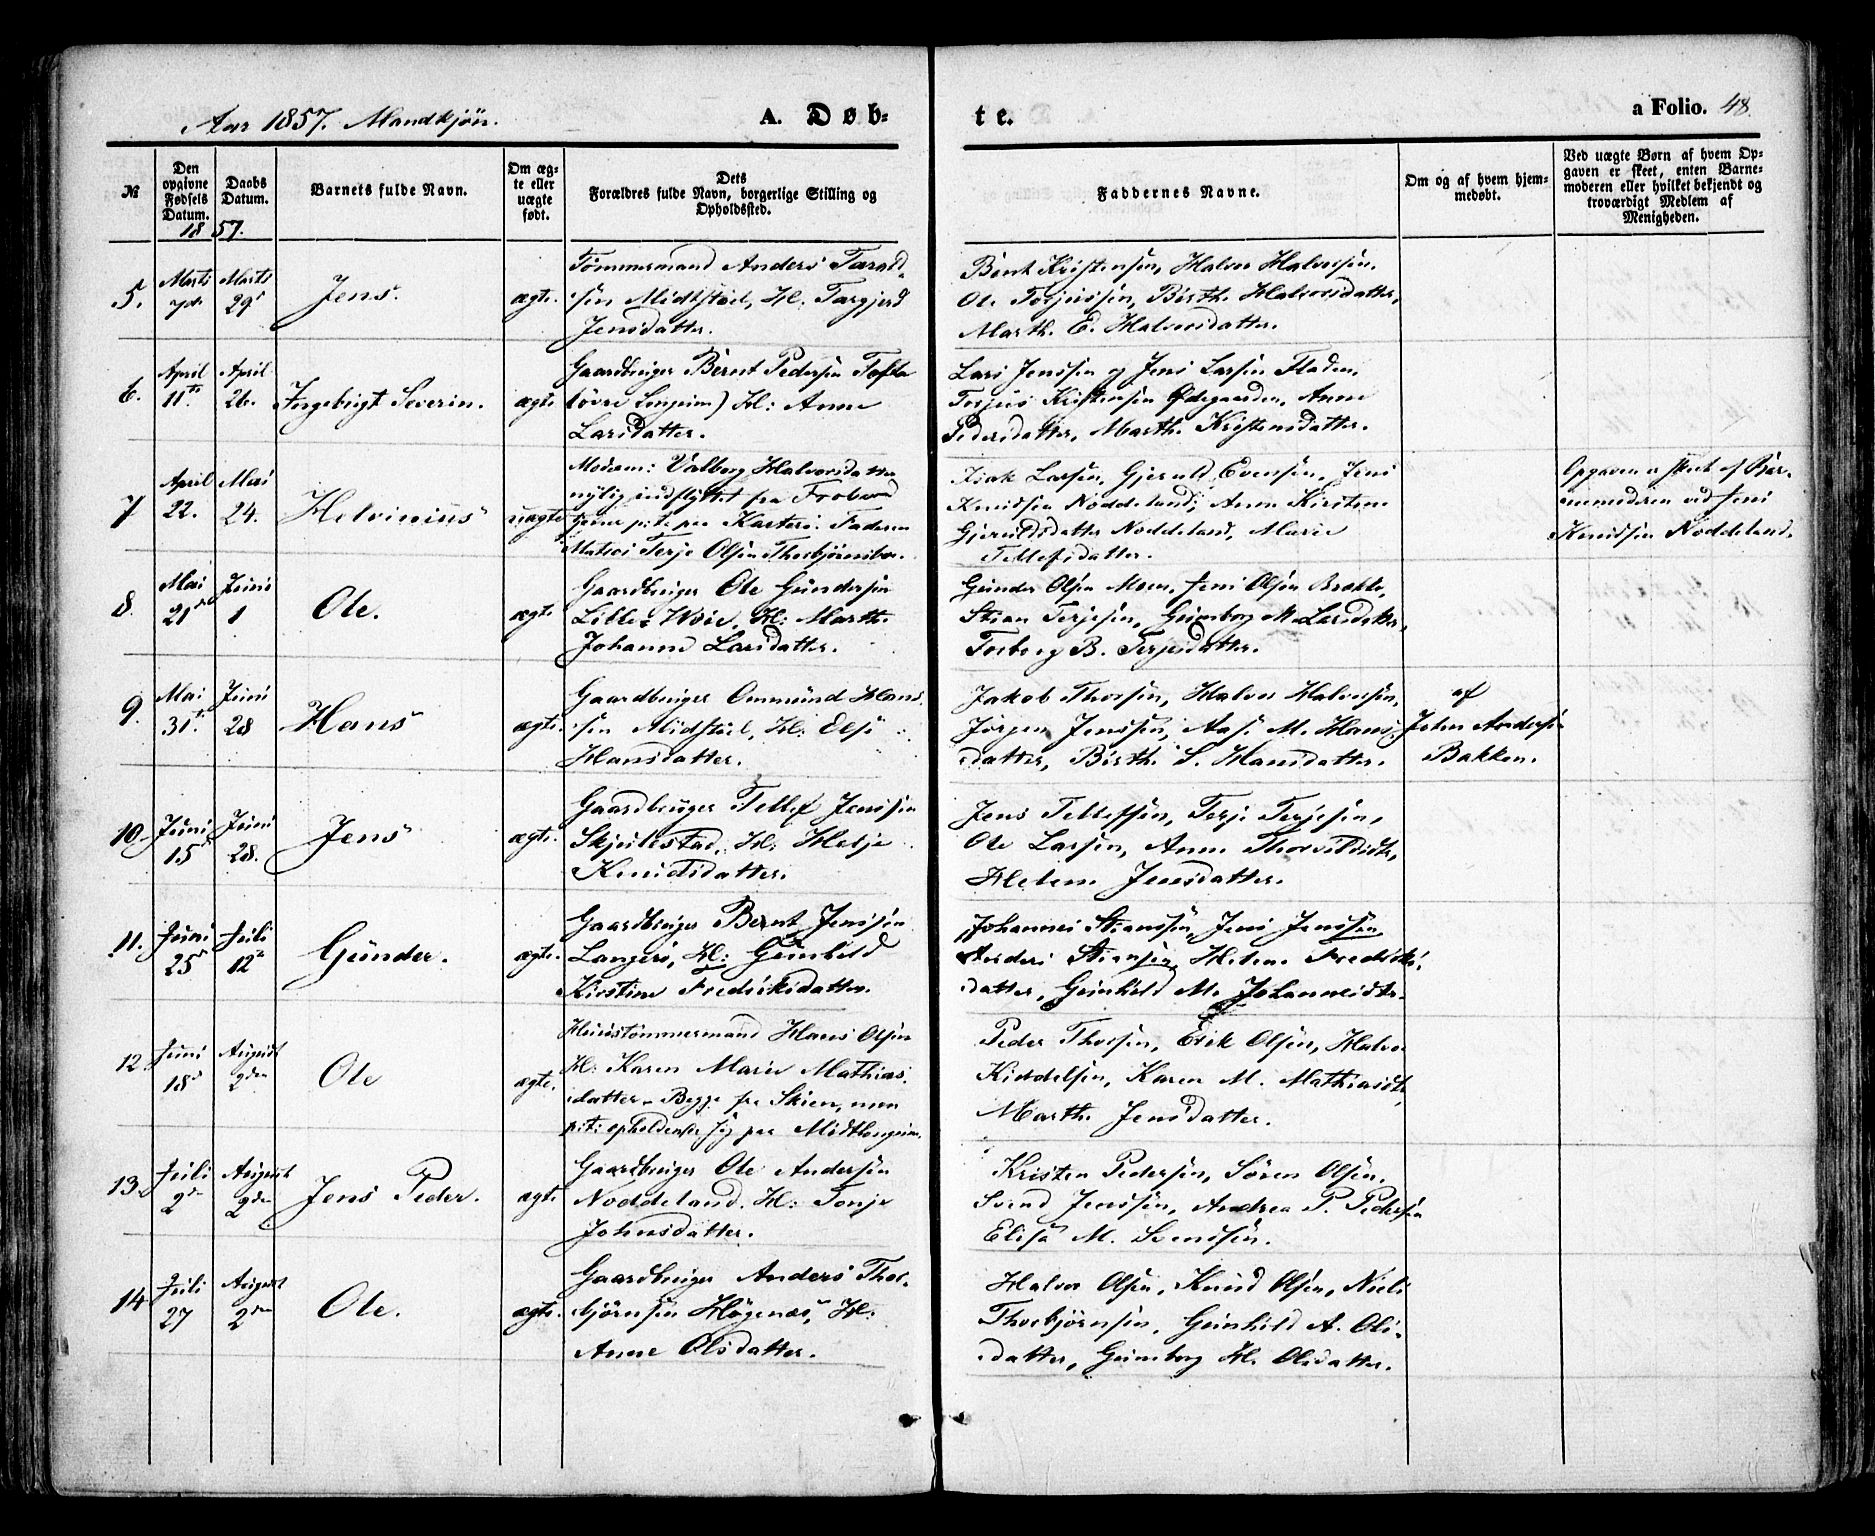 Aar 1857. Mandkjön.
A. Døb-
te.
a Folio. 48.
№
Den opgivne Fødsels Datum.
Daabs Datum.
1857.
Barnets fulde Navn.
Om ægte eller uægte født.
Dets
Forældres fulde Navn, borgerlige Stilling og Opholdssted.
Faddernes Navne.
Om og af hvem hjemmedøbt.
Ved uægte Børn af hvem Opgaven er skeet, enten Barnemoderen eller hvilket bekjendt og troværdigt Medlem af Menigheden.
5. Marts 7de Marts 29de Jens. ægte.
Tømmermand Anders Tarald-
sen Midtstöel, H. Targjerd
Jensdatter.
Bent Kristensen, Halvor Halvorsen,
Ole Torjussen, Birthe Halvorsdatter,
Marth. E. Halvorsdatter.
6. April 11te April 26. Ingebrigt Severin. ægte
Gaardbruger Bernt Pedersen Tofte
(övre Longum) H: Anne
Larsdatter.
Lars Jenssen og Jens Larsen Fladen,
Torjus Kristensen Ødegaarden, Anne
Pedersdatter, Marth. Kristensdatter.
7 April 22. Mai 24. Helvinius uægte
Modem: Valborg Halvorsdatter
nylig indflyttet fra
Faderen
Matros Terje Olsen
Larsen, Gjeruld Evensen, Jens
Knudsen Noddeland, Anne Kirstine
Gjeruldsdatter Noddeland, Marie
Tellefsdatter.
Opgaven er skeet af Bar-
nemoderen ved Jens
Knudsen Noddeland.
8. Mai 21de Juni 1 Ole. ægte
Gaardbruger Ole Gundersen
Lille-Wöie, H: Marth.
Johanne Larsdatter.
Gunder Olsen Moen, Jens Olsen Brække,
Stian Terjesen, Gunborg M. Larsdatter,
Torborg B. Terjesdatter.
9. Mai 31te Juni 28 Hans ægte
Gaardbruger Ommund Han-
sen Midstöel, H: Else
Hansdatter.
Jakob Thorsen, Halvor Halvorsen,
Jörgen Jenssen, Aas. M. Hans-
datter, Birth. S. Hansdatter.
af
John Andersen
Bakken.
10. Juni 15de Juni 28. Jens ægte.
Gaardbruger Tellef Jenssen
Skjulestad, H: Helje
Knudsdatter.
Jens Tellefsen, Terje Terjesen,
Ole Larsen, Anne Thorvaldsdtr,
Helene Jensdatter.
11. Juni 25de Juli 12te Gunder. ægte
Gaardbruger Bernt Jenssen
Langerö, H: Gunhild
Kirstine Fredriksdatter.
Johannes Stiansen, Jens Jenssen,
Anders Stiansen, Helene Fredriks-
datter, Gunhild M. Johannesdtr.
12. Juni 18de August 2den Ole ægte.
Huustömmermand Hans Olsen
H: Karen Marie Mathias-
datter - Begge fra Skien, men
opholdende sig paa Midtlongum.
Peder Thorsen, Erik Olsen, Halvor
Kiddelsen, Karen M. Mathiasdtr,
Marth. Jensdatter.
13. Juli 2den August 2den Jens Peder. ægte
Gaardbruger Ole Andersen
Noddeland. H: Tonje
Johnsdatter.
Kristen Pedersen, Sören Olsen,
Svend Jenssen, Andrea P. Pedersen
Elise M. Svendsen.
14 Juli 27 August 2den Ole. ægte.
Gaardbruger Anders Thor-
björnsen Högenæs, H:
Anne Olsdatter.
Halvor Olsen, Knud Olsen, Niels
Thorbjörnsen, Gunhild A. Ols-
datter, Gunborg H. Olsdatter.